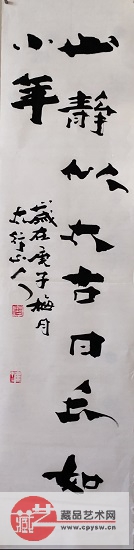 山静似太古日长如
小年
岁在庚子梅月
藏艺
藏品艺术网
www.cpysw.cn